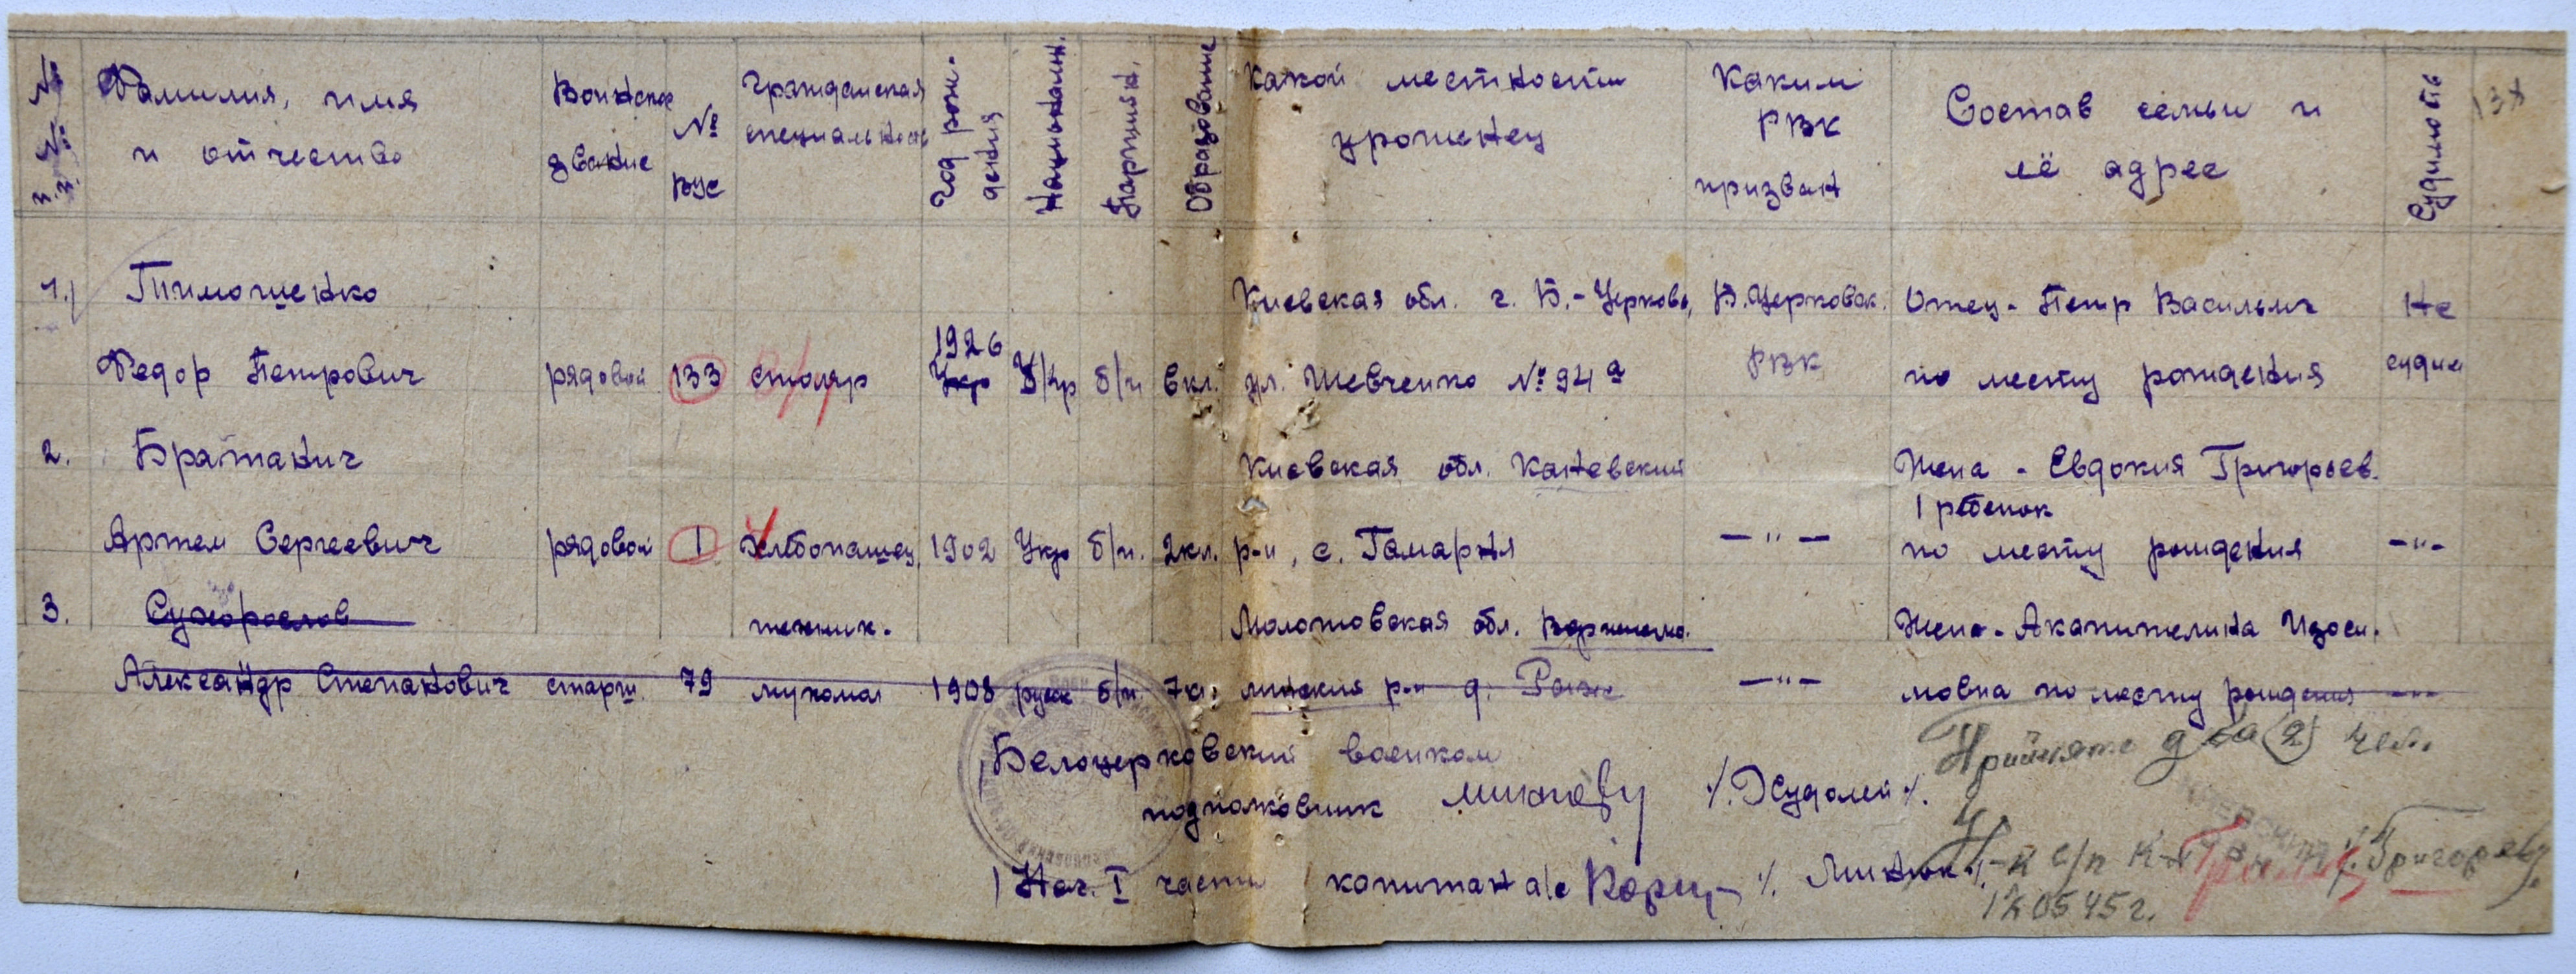 № № п.п.
Фамилия, имя и отчество
Воинское звание
№ ВУС
Гражданская специальность
Год рождения
Национальн.
Партийн.
Образование
Какой местности уроженец
Каким РВК призван
Состав семьи и её адрес
Судимость
1.) Тимошенко Киевская обл. г. Б.-Церковь, Б.Церковск. Отец - Петр Васильич Не
1926
Федор Петрович рядовой 133 столяр Укр Укр б/п 6кл. ул. Шевченко № 94а РВК по месту рождения судим
2. Братанич Киевская обл. Каневский Жена - Евдокия Григорьев.
1 ребенок
Артем Сергеевич рядовой 1 хлебопашец 1902 Укр б/п. 2кл. р-н, с. Гамарня —"— по месту рождения —"—
3. Сухорослов техник. Молотовская обл. Жена - Акапителина Изоси.
Александр Степанович старш. 79 мукомол 1908 русск б/п 7кл. р-н д. —"— мовна по месту рождения —"—
Белоцерковский военком
Принято два (2) чел.
подполковник ./. Худолей ./.
Нач. I части капитан а/с ./. Минюк ./.
Н-к с/п к-н ./. Григорьев
05 45 г.